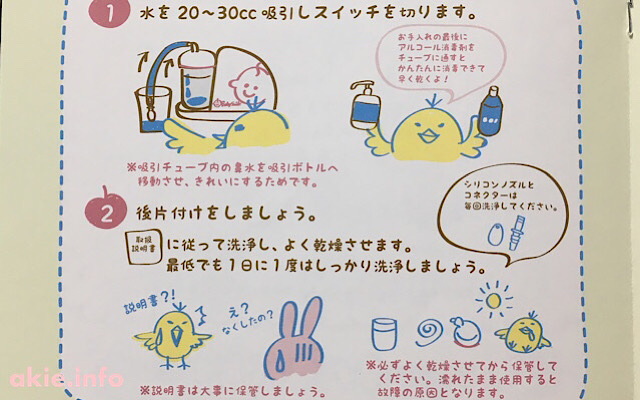 1 水を20〜30cc吸引しスイッチを切ります。
お手入れの最後に
アルコール消毒剤を
チューブに通すと
かんたんに消毒できて
早く乾くよ！
※吸引チューブ内の鼻水を吸引ボトルへ
移動させ、きれいにするためです。
2 後片付けをしましょう。
シリコンノズルと
コネクターは
毎回洗浄してください。
取扱
説明書
に従って洗浄し、よく乾燥させます。
最低でも1日に1度はしっかり洗浄しましょう。
説明書?!
え？
なくしたの？
※説明書は大事に保管しましょう。
※必ずよく乾燥させてから保管して
ください。濡れたまま使用すると
故障の原因となります。
akie.info